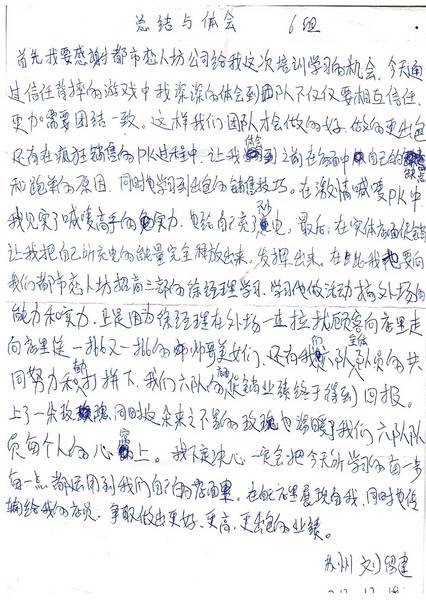 总结与体会 6组
首先我要感谢都市恋人坊公司给我这次培训学习的机会，今天通
过信任背摔的游戏中我深深的体会到团队不仅仅要相互信任，
更加需要团结一致。这样我们团队才会做的好，做的更出色
还有在疯狂销售的PK过程中，让我体会到之前在店面中自己的缺点
和跑单的原因，同时也学习到出色的销售技巧。在激情喊唛PK中
我见实了喊唛高手的实力，也给自己充了电，最后，在实体店面促销
让我把自己所充电的能量完全释放出来，发挥出来，在此我要向
我们都市恋人坊招商三部的徐经理学习，学习他做活动搞外场的
能力和实力，正是因为徐经理在外场一直拉找顾客向店里走
向店里使一排又一排的帅哥美女们，还有我们六队全体队员的共
同努力和打拼下，我们六队的促销业绩终于得到回报。
上了一朵玫瑰，同时这朵来之不易的玫瑰也温暖了我们六队队
员每个人的心窝上。我下定决心一定会把今天所学习的每一步
每一点都运用到我们自己的店面里。在自己店里展现自我，同时也传
输给我的店员，争取做出更好，更高，更出色的业绩。
苏州 刘留建